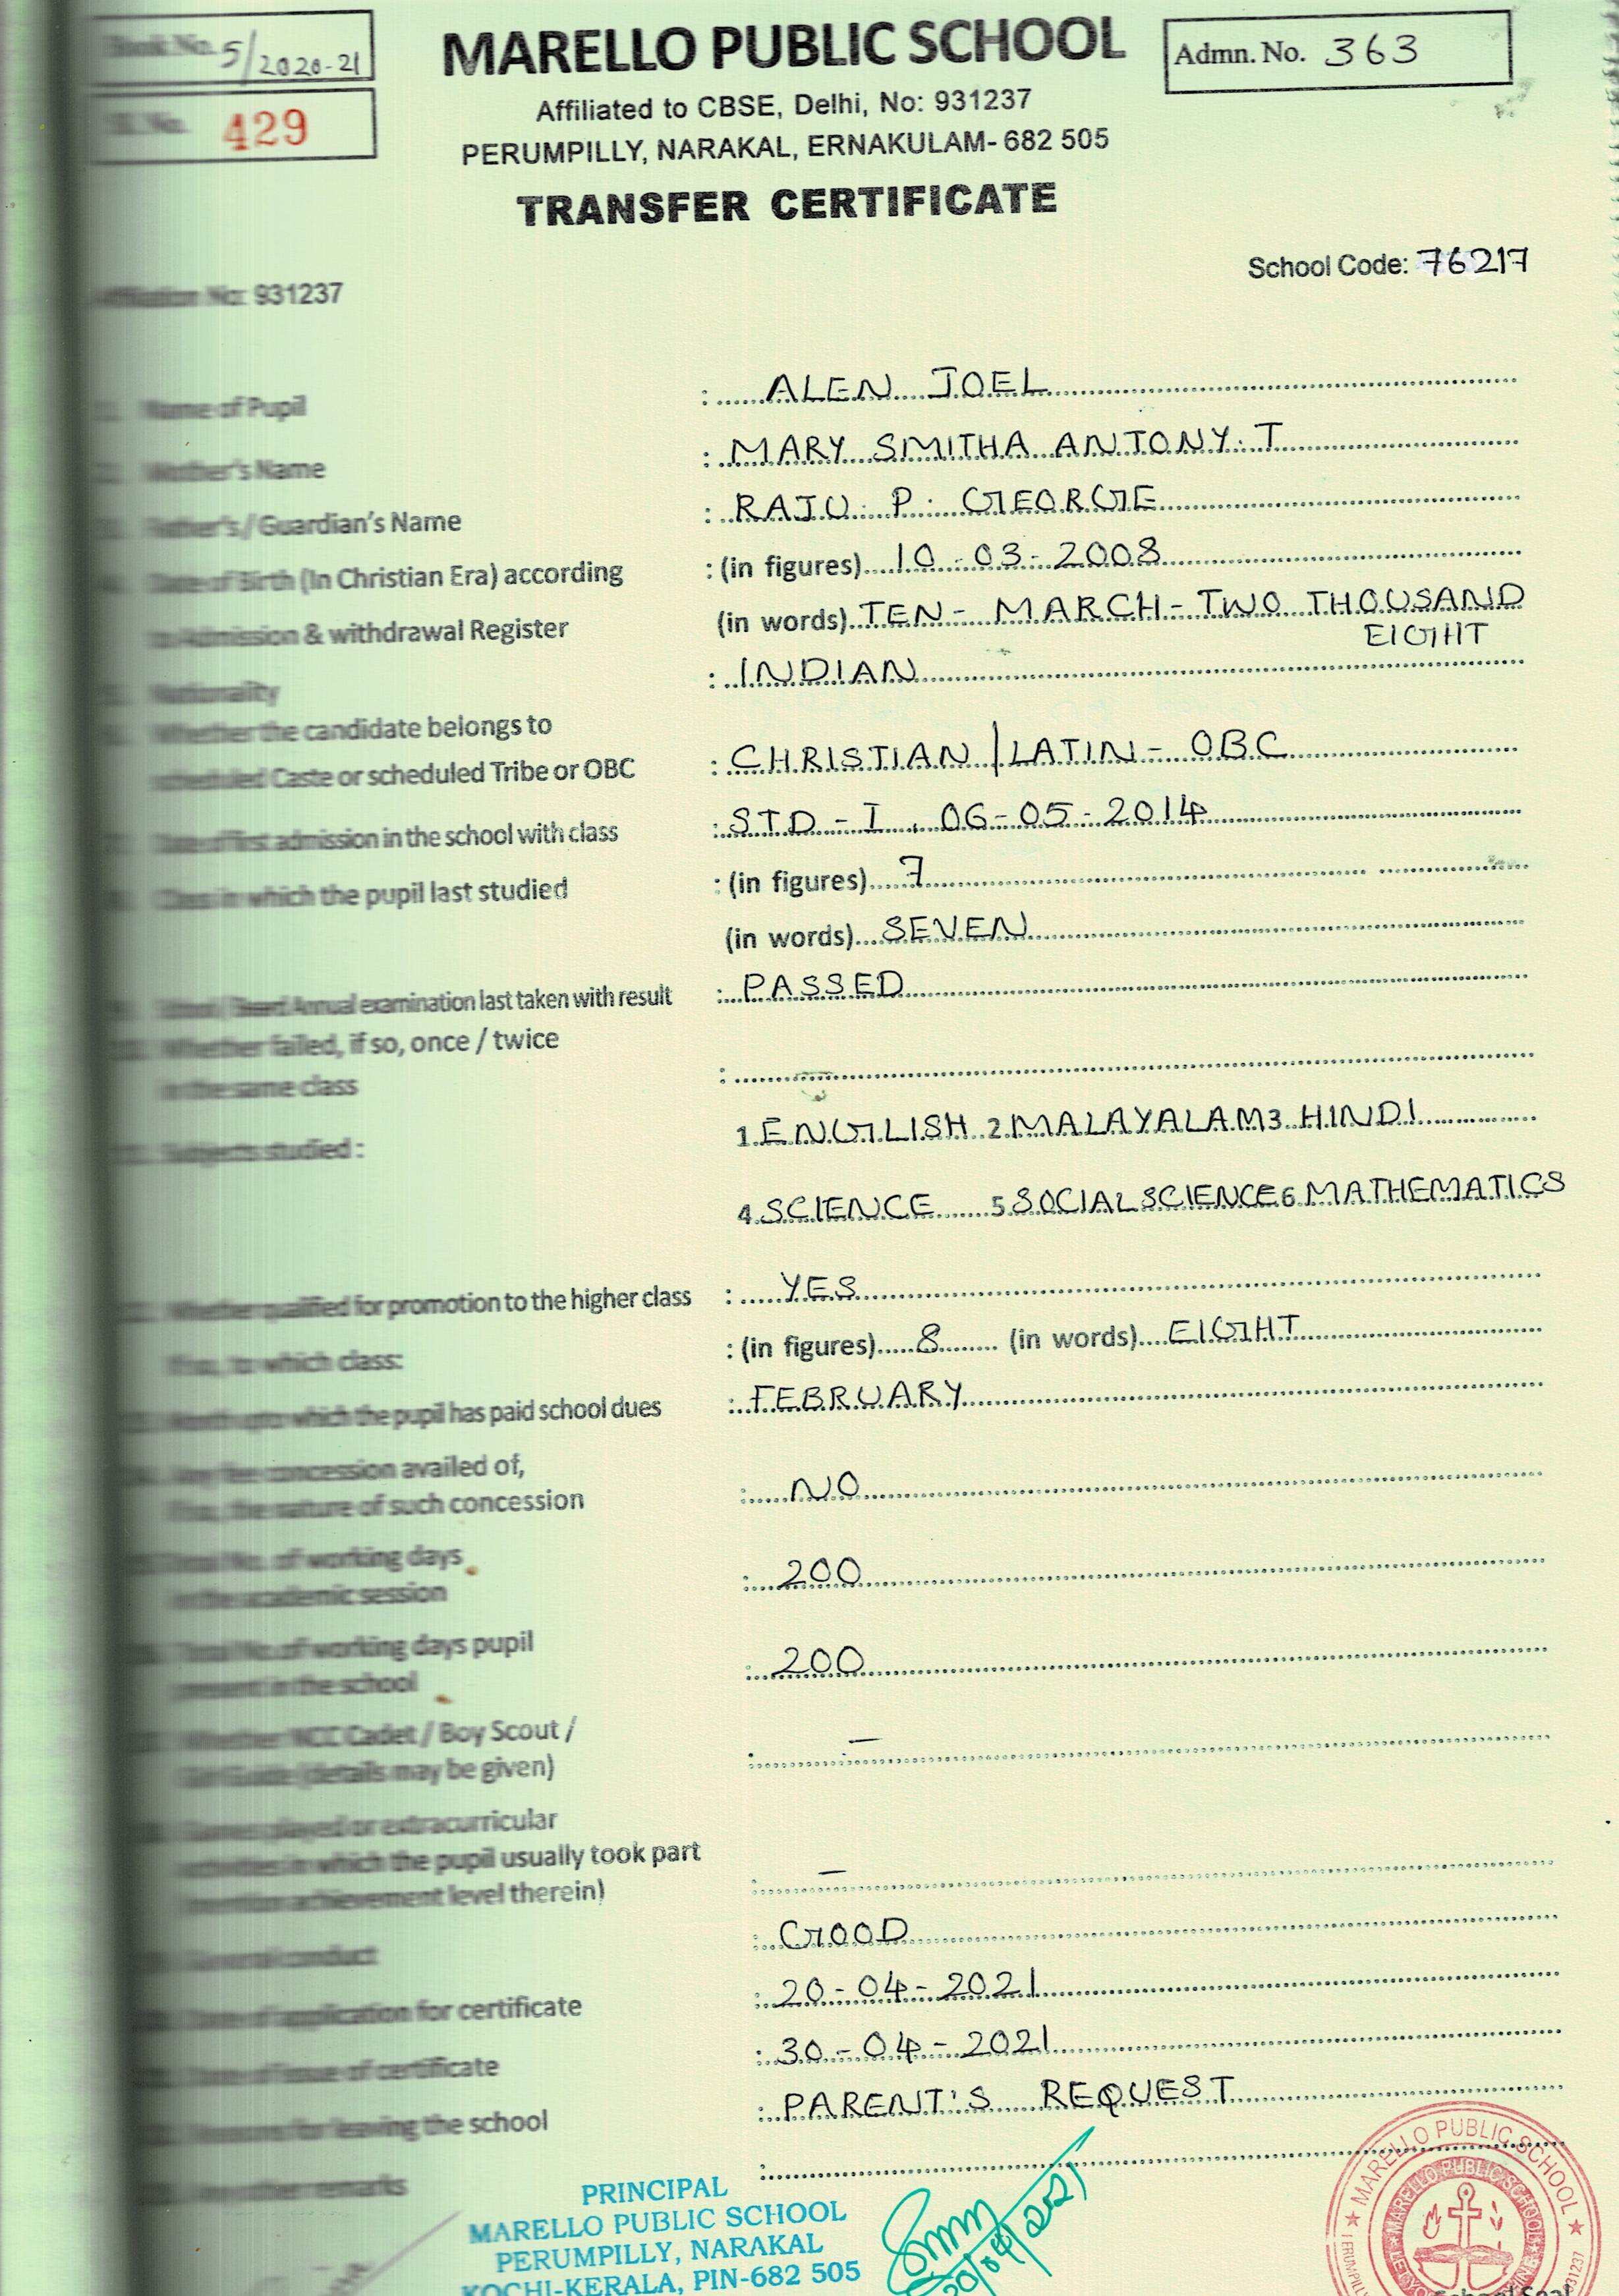 Book No. 5/2020-21
MARELLO PUBLIC SCHOOL
Admn. No. 363
Sl. No. 429
Affiliated to CBSE, Delhi, No: 931237
PERUMPILLY, NARAKAL, ERNAKULAM- 682 505
TRANSFER CERTIFICATE
School Code: 76217
Affiliation No: 931237
Name of Pupil : ALEN JOEL
Mother's Name : MARY SMITHA ANTONY. T
Father's / Guardian's Name : RAJU. P. GEORGE
Date of Birth (In Christian Era) according : (in figures) 10-03-2008
to Admission & withdrawal Register (in words) TEN - MARCH - TWO THOUSAND
EIGHT
Nationality : INDIAN
Whether the candidate belongs to
scheduled Caste or scheduled Tribe or OBC : CHRISTIAN / LATIN - OBC
Date of first admission in the school with class : STD - I , 06-05-2014
Class in which the pupil last studied : (in figures) 7
(in words) SEVEN
School / Board Annual examination last taken with result : PASSED
Whether failed, if so, once / twice
in the same class :
Subjects studied : 1. ENGLISH 2 MALAYALAM 3 HINDI
4. SCIENCE 5 SOCIAL SCIENCE 6 MATHEMATICS
Whether qualified for promotion to the higher class : YES
If so, to which class: : (in figures) 8 (in words) EIGHT
Month upto which the pupil has paid school dues : FEBRUARY
Any fee concession availed of,
If so, the nature of such concession : NO
Total No. of working days
in the academic session : 200
Total No. of working days pupil
present in the school : 200
Whether NCC Cadet / Boy Scout /
Girl Guide (details may be given) : —
Games played or extracurricular
activities in which the pupil usually took part
(mention achievement level therein) : —
General conduct : GOOD
Date of application for certificate : 20-04-2021
Date of issue of certificate : 30-04-2021
Reasons for leaving the school : PARENT'S REQUEST
Any other remarks :
PRINCIPAL
MARELLO PUBLIC SCHOOL
PERUMPILLY, NARAKAL
KOCHI-KERALA, PIN-682 505
30/04/2021
MARELLO PUBLIC SCHOOL
MARELLO PUBLIC SCHOOL
School Seal